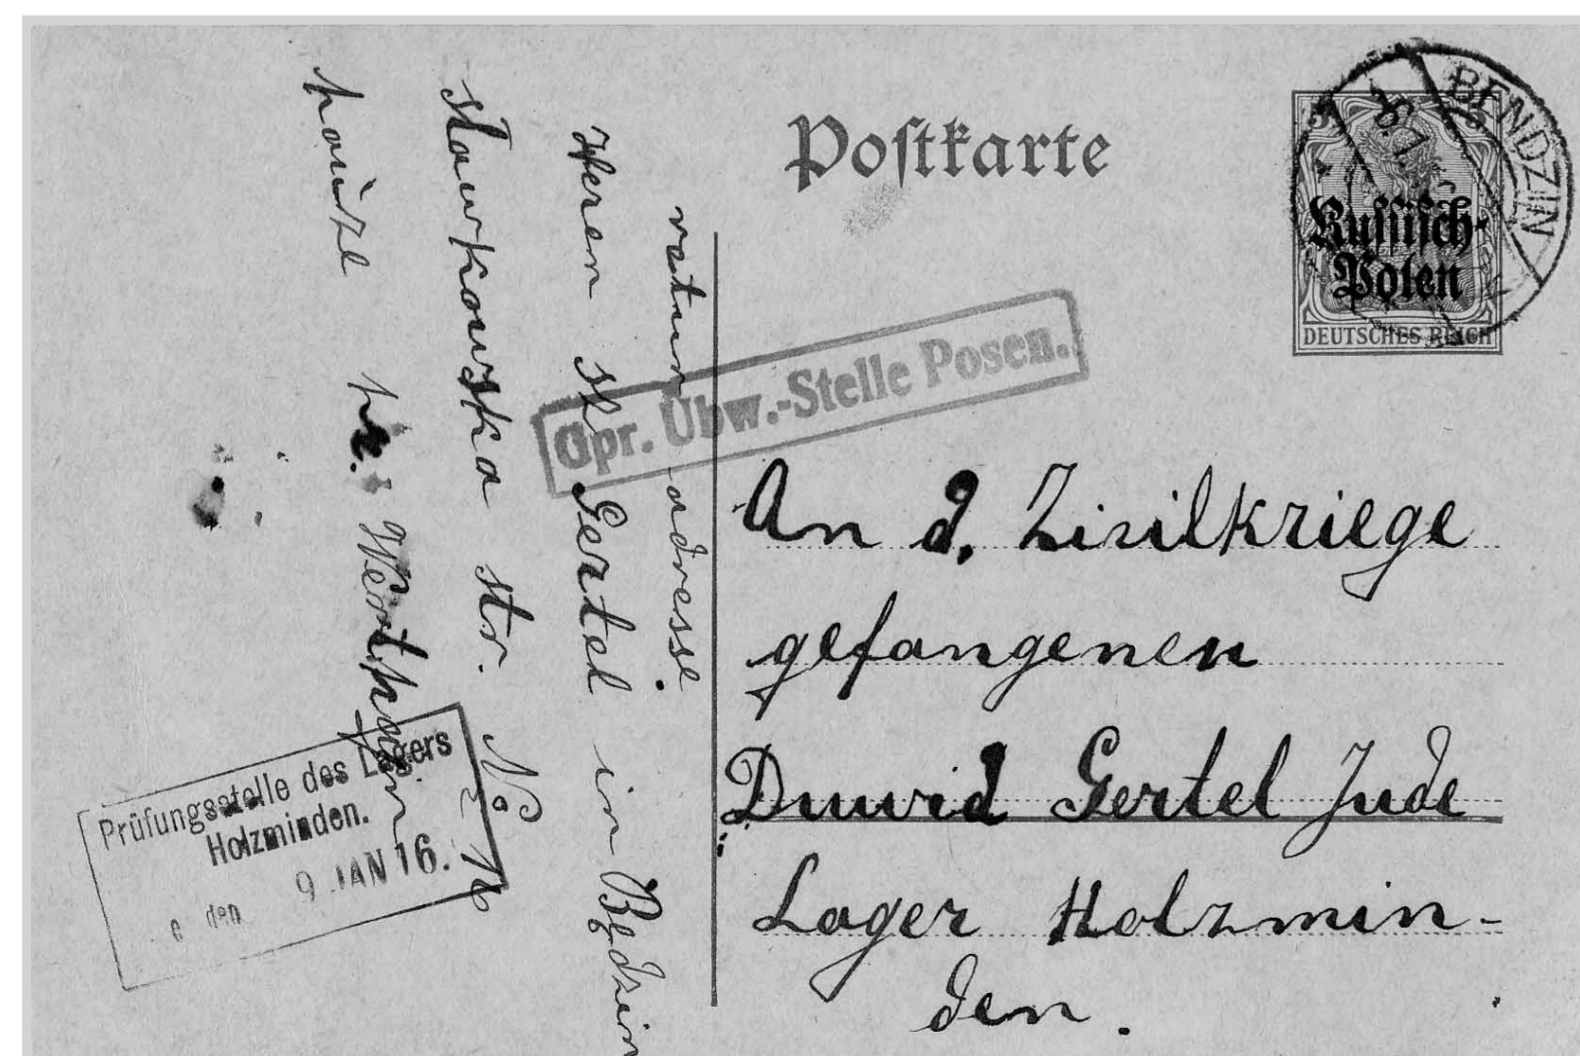 Postkarte
BENDZIN
Russisch-
Polen
DEUTSCHES REICH
Gpr. Übw.-Stelle Posen.
An d. Zivilkriege
gefangenen
Duwid Gertel Jude
Lager Holzmin-
den.
retur adresse
Heren Gertel in Będzin
slawkowska str. No
hauize
Prüfungsstelle des Lagers
Holzminden.
9 JAN 16.
den